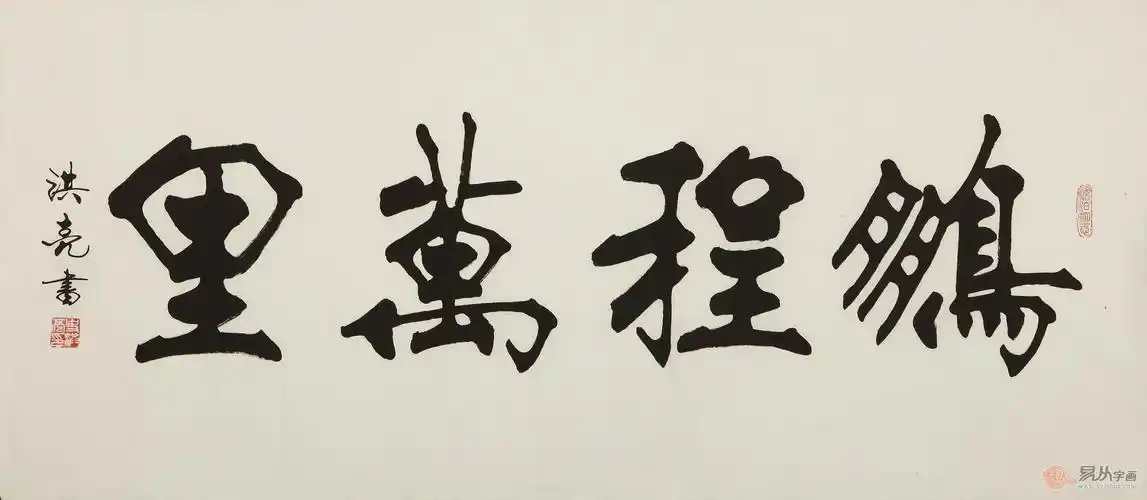 鵬程萬里
洪亮書
易从字画